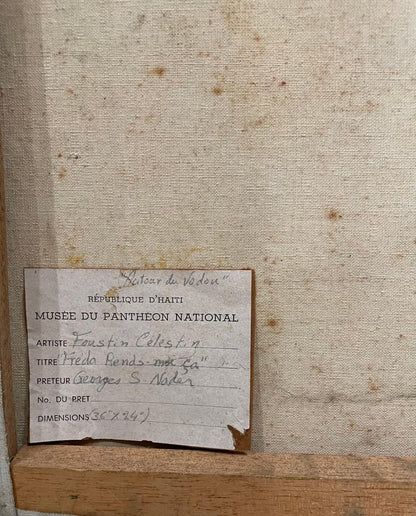 "Autour du Vodou"
RÉPUBLIQUE D'HAITI
MUSÉE DU PANTHÉON NATIONAL
ARTISTE Foustin Celestin
TITRE "Freda Rends ça"
PRETEUR Georges S. Nader
No. DU PRET
DIMENSIONS (36" X 24")